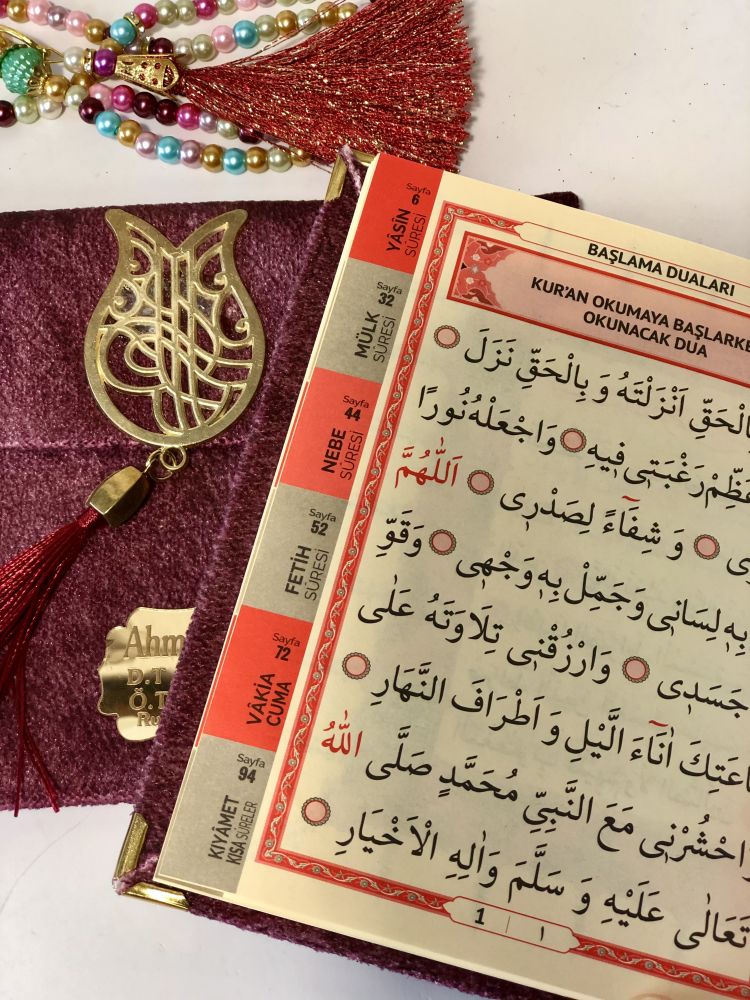 Sayfa
6
YÂSİN
SÛRESİ
Sayfa
32
MÜLK
SÛRESİ
Sayfa
44
NEBE
SÛRESİ
Sayfa
52
FETİH
SÛRESİ
Sayfa
72
VÂKIA
CUMA
Sayfa
94
KIYÂMET
KISA SÛRELER
BAŞLAMA DUALARI
KUR'AN OKUMAYA BAŞLARKE
OKUNACAK DUA
بِالْحَقِّ اَنْزَلْتَهُ وَ بِالْحَقِّ نَزَلَ
رَغْبَتٖى فٖيهِ وَاجْعَلْهُ نُورًا
وَ شِفَٓاءً لِصَدْرٖى اَللّٰهُمَّ
بِهٖ لِسَانٖى وَجَمِّلْ بِهٖ وَجْهٖى وَقَوِّ
جَسَدٖى وَارْزُقْنٖى تِلَاوَتَهُ عَلٰى
اٰنَٓاءَ الَّيْلِ وَ اَطْرَافَ النَّهَارِ
احْشُرْنٖى مَعَ النَّبِيِّ مُحَمَّدٍ صَلَّى اللّٰهُ
تَعَالٰى عَلَيْهِ وَ سَلَّمَ وَاٰلِهِ الْاَخْيَارِ
1 | ١
Ahm
D.T
Ö.T
Ru